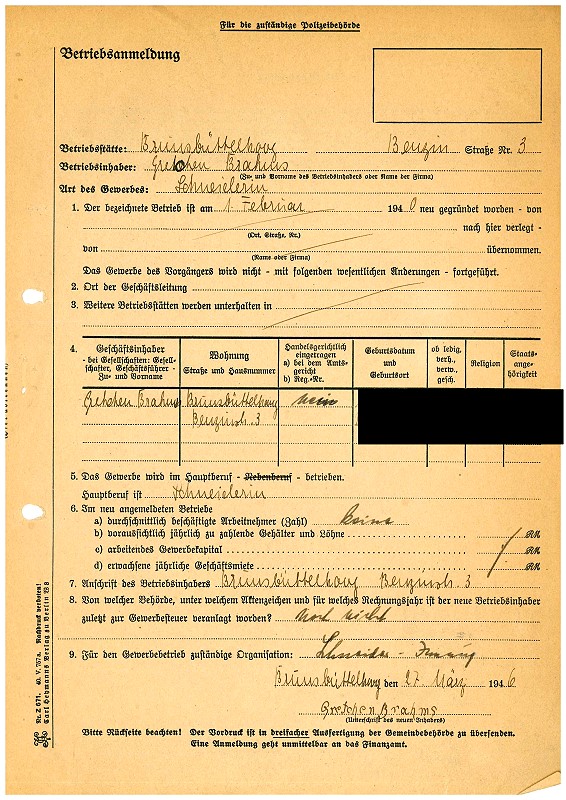 Für die zuständige Polizeibehörde
Betriebsanmeldung
Betriebsstätte: Brunsbüttelkoog Benzin Straße Nr. 3
Betriebsinhaber: Gretchen Brahms
(Zu- und Vorname des Betriebsinhabers oder Name der Firma)
Art des Gewerbes: Schneiderin
1. Der bezeichnete Betrieb ist am 1. Februar 1940 neu gegründet worden - von
nach hier verlegt -
(Ort, Straße, Nr.)
von übernommen.
(Name oder Firma)
Das Gewerbe des Vorgängers wird nicht - mit folgenden wesentlichen Änderungen - fortgeführt.
2. Ort der Geschäftsleitung
3. Weitere Betriebsstätten werden unterhalten in
4. Geschäftsinhaber - bei Gesellschaften: Gesellschafter, Geschäftsführer - Zu- und Vorname
Wohnung Straße und Hausnummer
Handelsgerichtlich eingetragen a) bei dem Amtsgericht b) Reg.-Nr.
Geburtsdatum und Geburtsort
ob ledig, verh., verw., gesch.
Religion
Staatsangehörigkeit
Gretchen Brahms Brunsbüttelkoog nein
Benzinstr. 3
5. Das Gewerbe wird im Hauptberuf - Nebenberuf - betrieben.
Hauptberuf ist Schneiderin
6. Im neu angemeldeten Betriebe
a) durchschnittlich beschäftigte Arbeitnehmer (Zahl) keine
b) voraussichtlich jährlich zu zahlende Gehälter und Löhne RM.
c) arbeitendes Gewerbekapital RM.
d) erwachsene jährliche Geschäftsmiete RM.
7. Anschrift des Betriebsinhabers Brunsbüttelkoog Benzinstr. 3
8. Von welcher Behörde, unter welchem Aktenzeichen und für welches Rechnungsjahr ist der neue Betriebsinhaber
zuletzt zur Gewerbesteuer veranlagt worden? Noch nicht
9. Für den Gewerbebetrieb zuständige Organisation: Schneider-Innung
Brunsbüttelkoog den 27. März 1946
Gretchen Brahms
(Unterschrift des neuen Inhabers)
Bitte Rückseite beachten! Der Vordruck ist in dreifacher Ausfertigung der Gemeindebehörde zu übersenden.
Eine Anmeldung geht unmittelbar an das Finanzamt.
Nr. Z 671. 40. V. 767a. Nachdruck verboten!
Carl Heymanns Verlag zu Berlin W 8